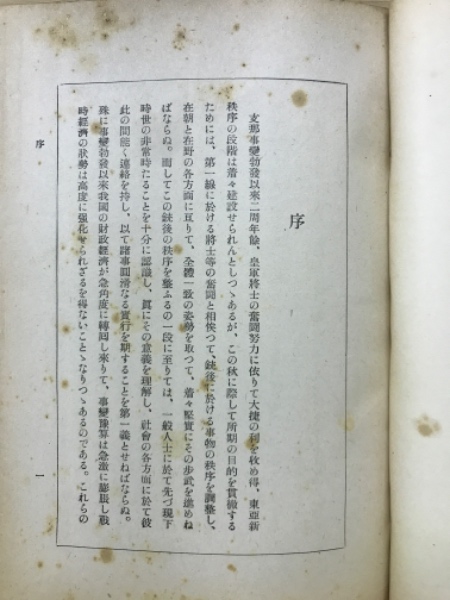 序
支那事變勃發以來二周年餘、皇軍將士の奮鬪努力に依りて大捷の利を收め得、東亞新
秩序の段階は着々建設せられんとしつゝあるが、この秋に際して所期の目的を貫徹する
ためには、第一線に於ける將士等の奮鬪と相俟つて、銃後に於ける事物の秩序を調整し、
在朝と在野の各方面に亙りて、全體一致の姿勢を取つて、着々堅實にその歩武を進めね
ばならぬ。而してこの銃後の秩序を整ふるの一段に至りては、一般人士に於て先づ現下
時世の非常時たることを十分に認識し、眞にその意義を理解し、社會の各方面に於て彼
此の間能く連絡を持し、以て諸事圓滑なる實行を期することを第一義とせねばならぬ。
殊に事變勃發以來我國の財政經濟が急角度に轉囘し來りて、事變豫算は急激に膨脹し戰
時經濟の狀勢は高度に强化せられざるを得ないことゝなりつゝあるのである。これらの
序
一